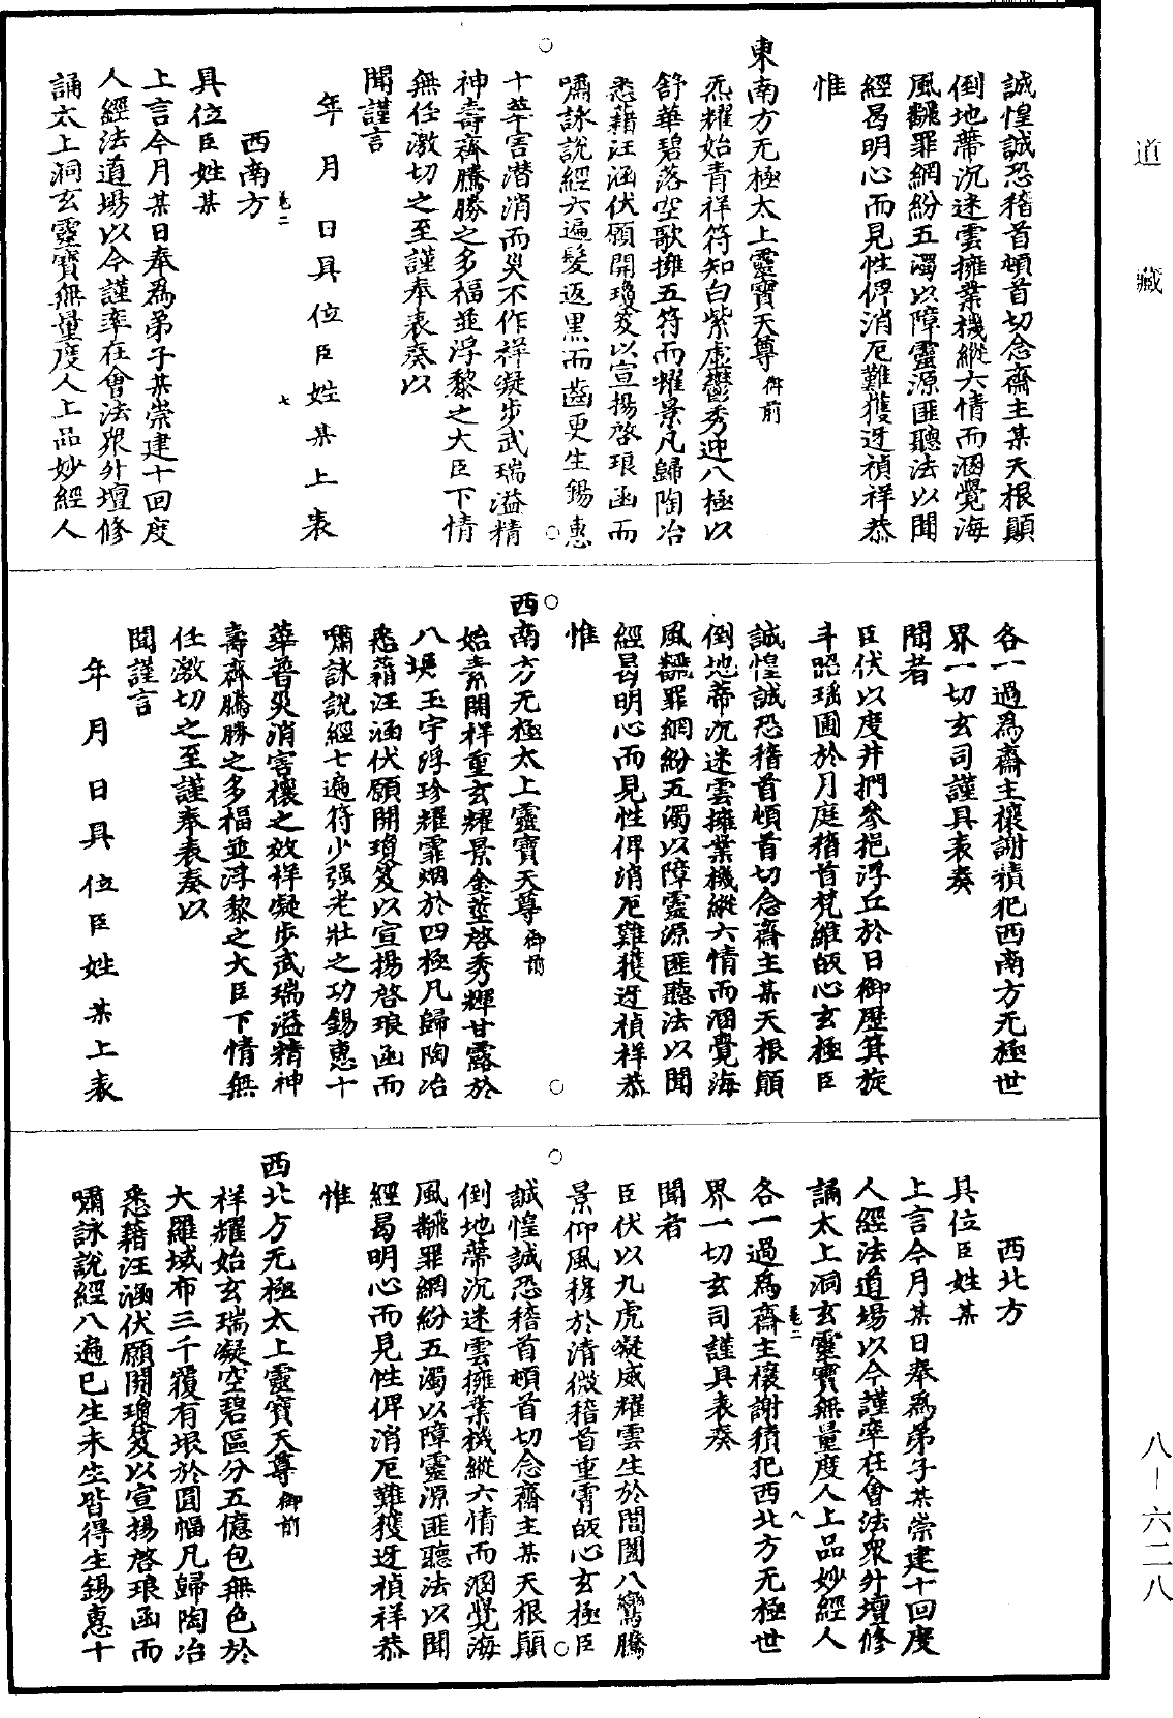 誠惶誠恐稽首頓首切念齋主某天根顚
倒地蔕沉迷雲擁業機縱六情而涸覺海
風飜罪網紛五濁以障靈源匪聽法以聞
經曷明心而見性俾消厄難獲迓禎祥恭
惟
東南方无極太上靈寶天尊御前
炁耀始青祥符知白紫虛鬱秀迎八極以
舒華碧落空歌擁五符而耀景凡歸陶冶
悉藉汪涵伏願開瓊笈以宣揚啓琅函而
嘯詠說經六遍髮返黑而齒更生錫惠
十華害潛消而災不作祥凝步武瑞溢精
神壽齊騰勝之多福並浮黎之大臣下情
無任激切之至謹奉表奏以
聞謹言
年月日具位臣姓某上表
卷二 七
西南方
具位臣姓某
上言今月某日奉爲弟子某崇建十回度
人經法道場以今謹率在會法衆外壇修
誦太上洞玄靈寶無量度人上品妙經人
各一過爲齋主禳謝積犯西南方无極世
界一切玄司謹具表奏
聞者
臣伏以度井捫參挹浮丘於日御歷箕旋
斗昭瑤圃於月庭稽首梵維皈心玄極臣
誠惶誠恐稽首頓首切念齋主某天根顚
倒地蔕沉迷雲擁業機縱六情而涸覺海
風飜罪網紛五濁以障靈源匪聽法以聞
經曷明心而見性俾消厄難獲迓禎祥恭
惟
西南方无極太上靈寶天尊御前
始素開祥重玄耀景金莖啓秀輝甘露於
八埏玉宇浮珍耀霏烟於四極凡歸陶冶
悉藉汪涵伏願開瓊笈以宣揚啓琅函而
嘯詠說經七遍符少强老壯之功錫惠十
華普災消害禳之效祥凝步武瑞溢精神
壽齊騰勝之多福並浮黎之大臣下情無
任激切之至謹奉表奏以
聞謹言
年月日具位臣姓某上表
西北方
具位臣姓某
上言今月某日奉爲弟子某崇建十回度
人經法道場以今謹率在會法衆外壇修
誦太上洞玄靈寶無量度人上品妙經人
卷二 八
各一過爲齋主禳謝積犯西北方无極世
界一切玄司謹具表奏
聞者
臣伏以九虎凝威耀雲生於閶闔八鸞騰
景仰風穆於清微稽首重霄皈心玄極臣
誠惶誠恐稽首頓首切念齋主某天根顚
倒地蔕沉迷雲擁業機縱六情而涸覺海
風飜罪網紛五濁以障靈源匪聽法以聞
經曷明心而見性俾消厄難獲迓禎祥恭
惟
西北方无極太上靈寶天尊御前
祥耀始玄瑞凝空碧區分五億包無色於
大羅域布三千覆有垠於圓幅凡歸陶冶
悉藉汪涵伏願開瓊笈以宣揚啓琅函而
嘯詠說經八遍已生未生皆得生錫惠十
道藏
八-六二八